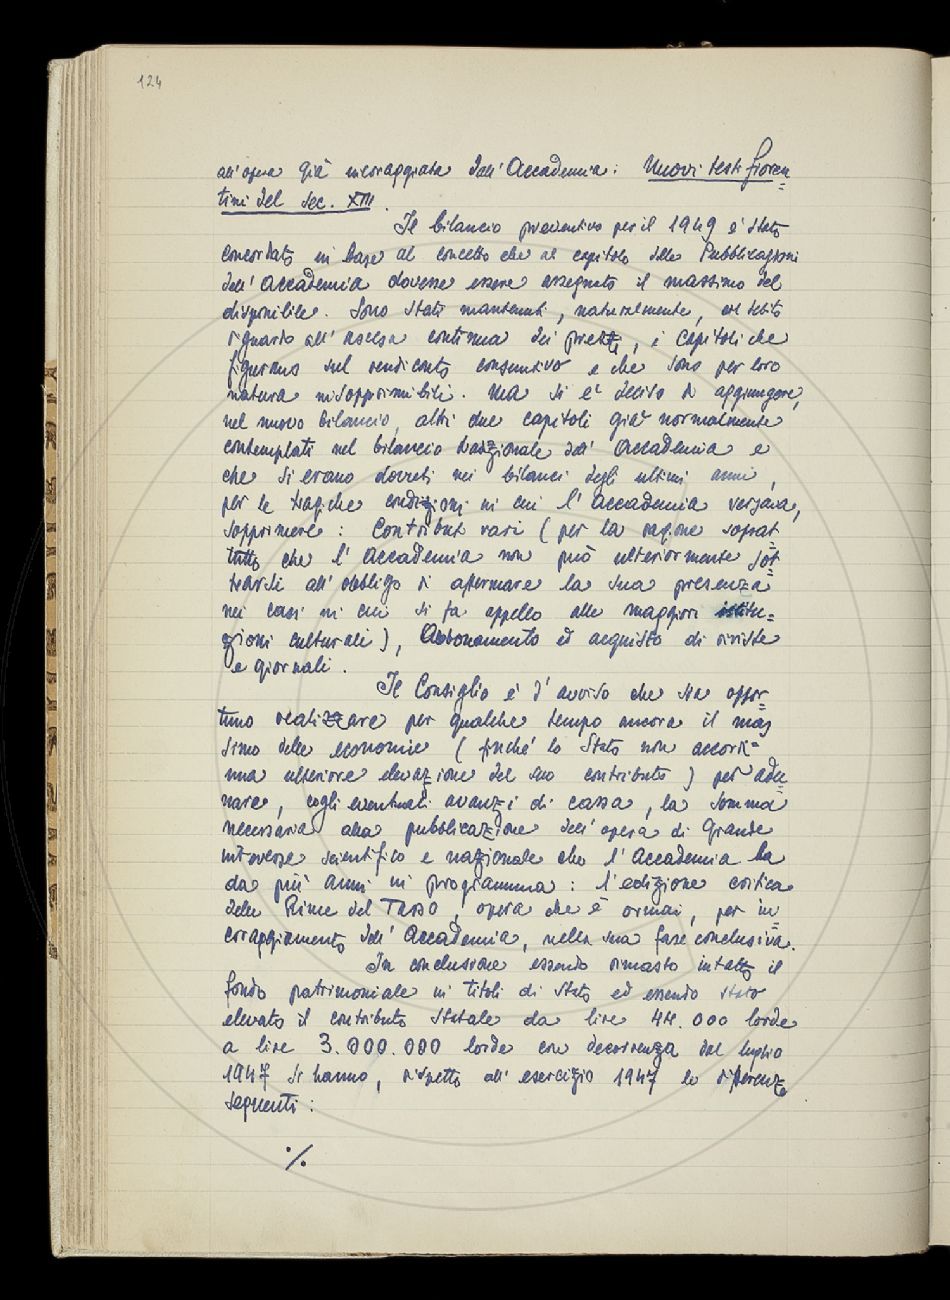 124
all'opera già incoraggiata dall'Accademia: Nuovi testi fioren=
tini del sec. XIII.
Il bilancio preventivo per il 1949 è stato
concordato in base al concetto che al capitolo delle Pubblicazioni
dell'Accademia dovesse essere assegnato il massimo del
disponibile. Sono stati mantenuti, naturalmente, col debito
riguardo all'ascesa continua dei prezzi, i capitoli che
figurano sul rendiconto consuntivo e che sono per loro
natura insopprimibili. Ma si è deciso di aggiungere,
nel nuovo bilancio, altri due capitoli già normalmente
contemplati nel bilancio tradizionale dell'Accademia e
che si erano dovuti nei bilanci degli ultimi anni,
per le tragiche condizioni in cui l'Accademia versava,
sopprimere: Contributi vari (per la ragione soprat
tutto che l'Accademia non può ulteriormente sot=
trarsi all'obbligo di affermare la sua presenza
nei casi in cui si fa appello alle maggiori istitu=
zioni culturali), Abbonamento ed acquisto di riviste
e giornali.
Il Consiglio è d'avviso che sia oppor=
tuno realizzare per qualche tempo ancora il mas
simo delle economie (finché lo Stato non accordi
una ulteriore elevazione del suo contributo) per adu=
nare, cogli eventuali avanzi di cassa, la somma
necessaria alla pubblicazione dell'opera di grande
interesse scientifico e nazionale che l'Accademia ha
da più anni in programma: l'edizione critica
delle Rime del Tasso, opera che è ormai, per in=
coraggiamento dell'Accademia, nella sua fase conclusiva.
In conclusione essendo rimasto intatto il
fondo patrimoniale in titoli di Stato ed essendo stato
elevato il contributo statale da lire 44.000 lorde
a lire 3.000.000 lorde con decorrenza dal luglio
1947 si hanno, rispetto all'esercizio 1947 le differenze
seguenti:
./.